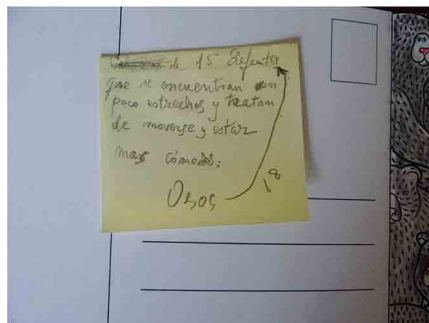 de 15 Elefantes
que se encuentran un
poco estrechos y tratan
de moverse y estar
mas cómodos:
Osos
18